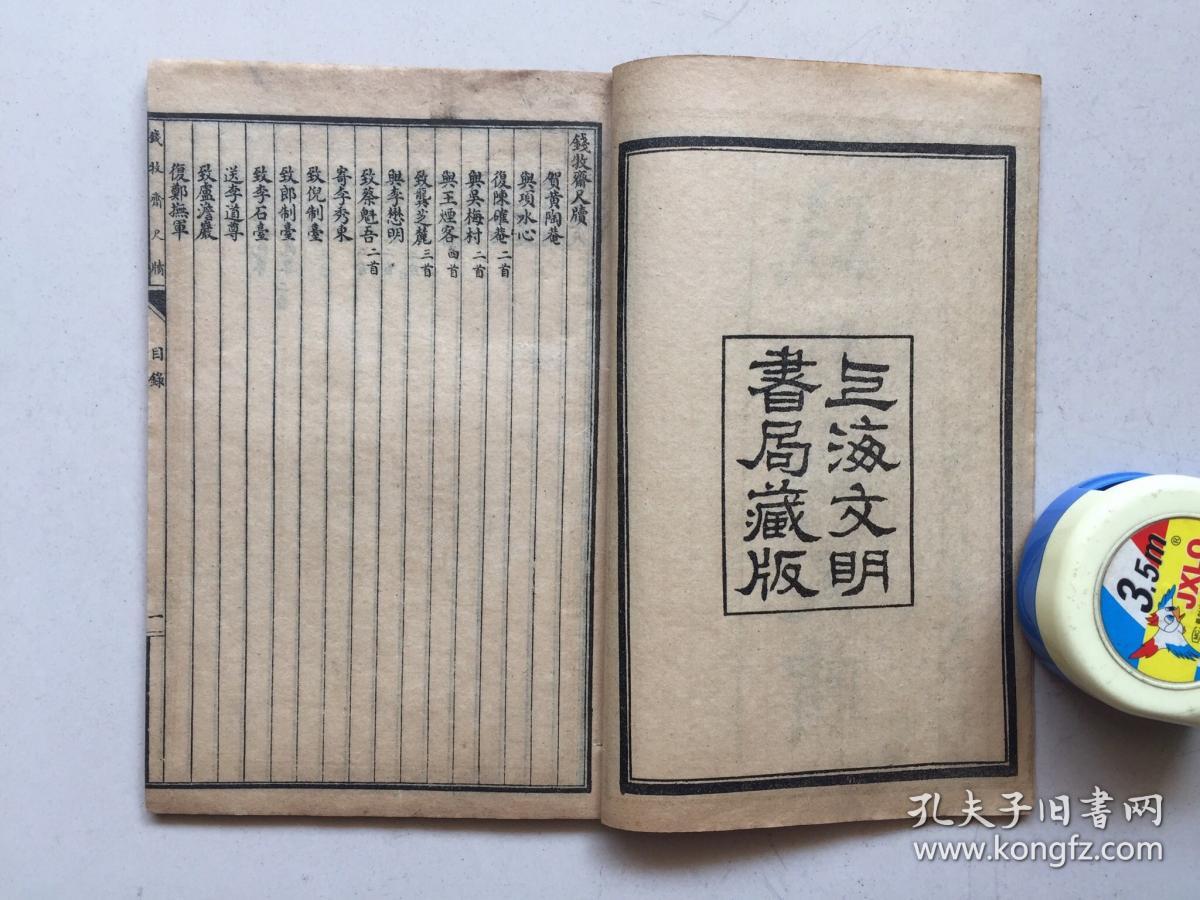 上海文明
書局藏版
錢牧齋尺牘
賀黃陶菴
與項水心
復陳確菴二首
與吳梅村二首
與王煙客四首
致龔芝麓三首
與李懋明
致蔡魁吾二首
寄李秀東
致倪制臺
致郎制臺
致李石臺
送李道尊
致盧澹巖
復鄭撫軍
錢牧齋尺牘
目錄
一
3.5m
JXLQ
®
孔夫子旧书网
www.kongfz.com